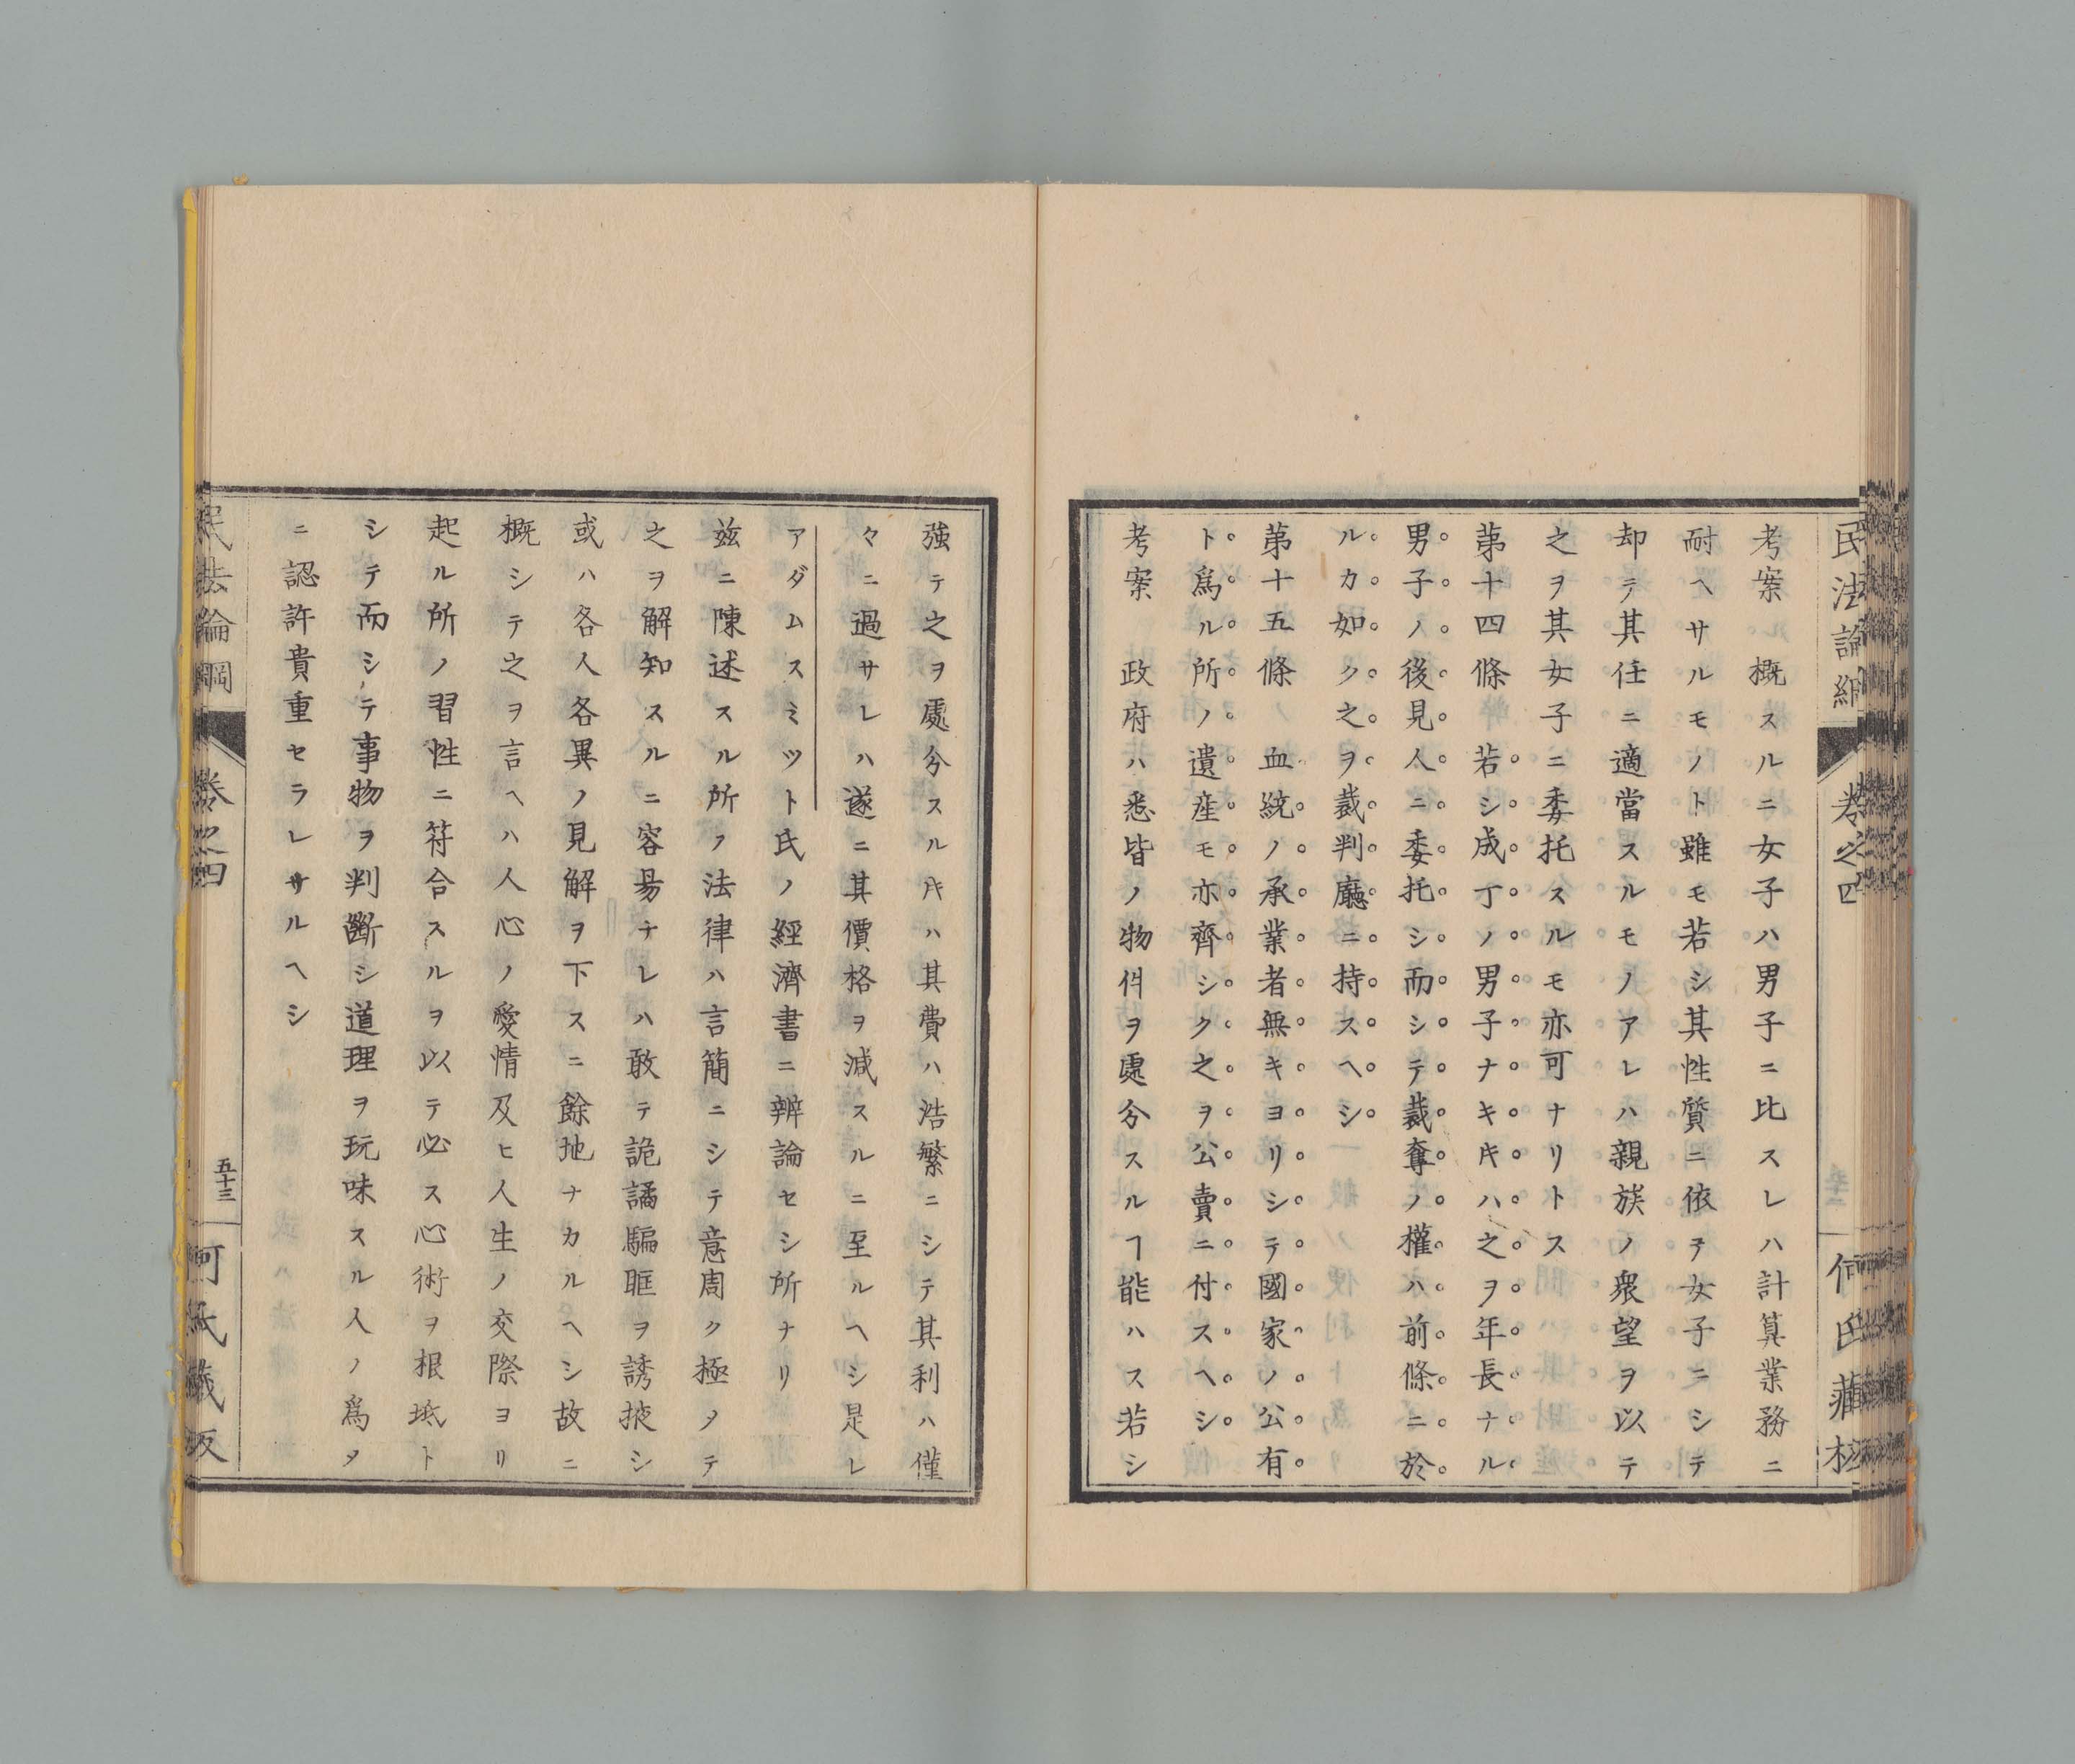 民法論綱
卷之四
何氏藏板
考案 概スルニ女子ハ男子ニ比スレハ計算業務ニ
耐ヘサルモノト雖モ若シ其性質ニ依テ女子ニシテ
却テ其任ニ適當スルモノアレハ親族ノ衆望ヲ以テ
之ヲ其女子ニ委托スルモ亦可ナリトス
第十四條 若シ成丁ノ男子ナキ𪜈ハ之ヲ年長ナル
男子ノ後見人ニ委托シ而シテ裁奪ノ權ハ前條ニ於
ルカ如ク之ヲ裁判廳ニ持スヘシ
第十五條 血統ノ承業者無キヨリシテ國家ノ公有
ト爲ル所ノ遺産モ亦齊シク之ヲ公賣ニ付スヘシ
考案 政府ハ悉皆ノ物件ヲ處分スルヿ能ハス若シ
強テ之ヲ處分スル𪜈ハ其費ハ浩繁ニシテ其利ハ僅
々ニ過サレハ遂ニ其價格ヲ減スルニ至ルヘシ是レ
アダムスミツト氏ノ經濟書ニ辨論セシ所ナリ
玆ニ陳述スル所ノ法律ハ言簡ニシテ意周ク極メテ
之ヲ解知スルニ容易ナレハ敢テ詭譎騙眶ヲ誘掖シ
或ハ各人各異ノ見解ヲ下スニ餘地ナカルヘシ故ニ
概シテ之ヲ言ヘハ人心ノ愛情及ヒ人生ノ交際ヨリ
起ル所ノ習性ニ符合スルヲ以テ必ス心術ヲ根坻ト
シテ而シテ事物ヲ判斷シ道理ヲ玩味スル人ノ爲メ
ニ認許貴重セラレサルヘシ
民法論綱
卷之四
五十三
何氏藏板